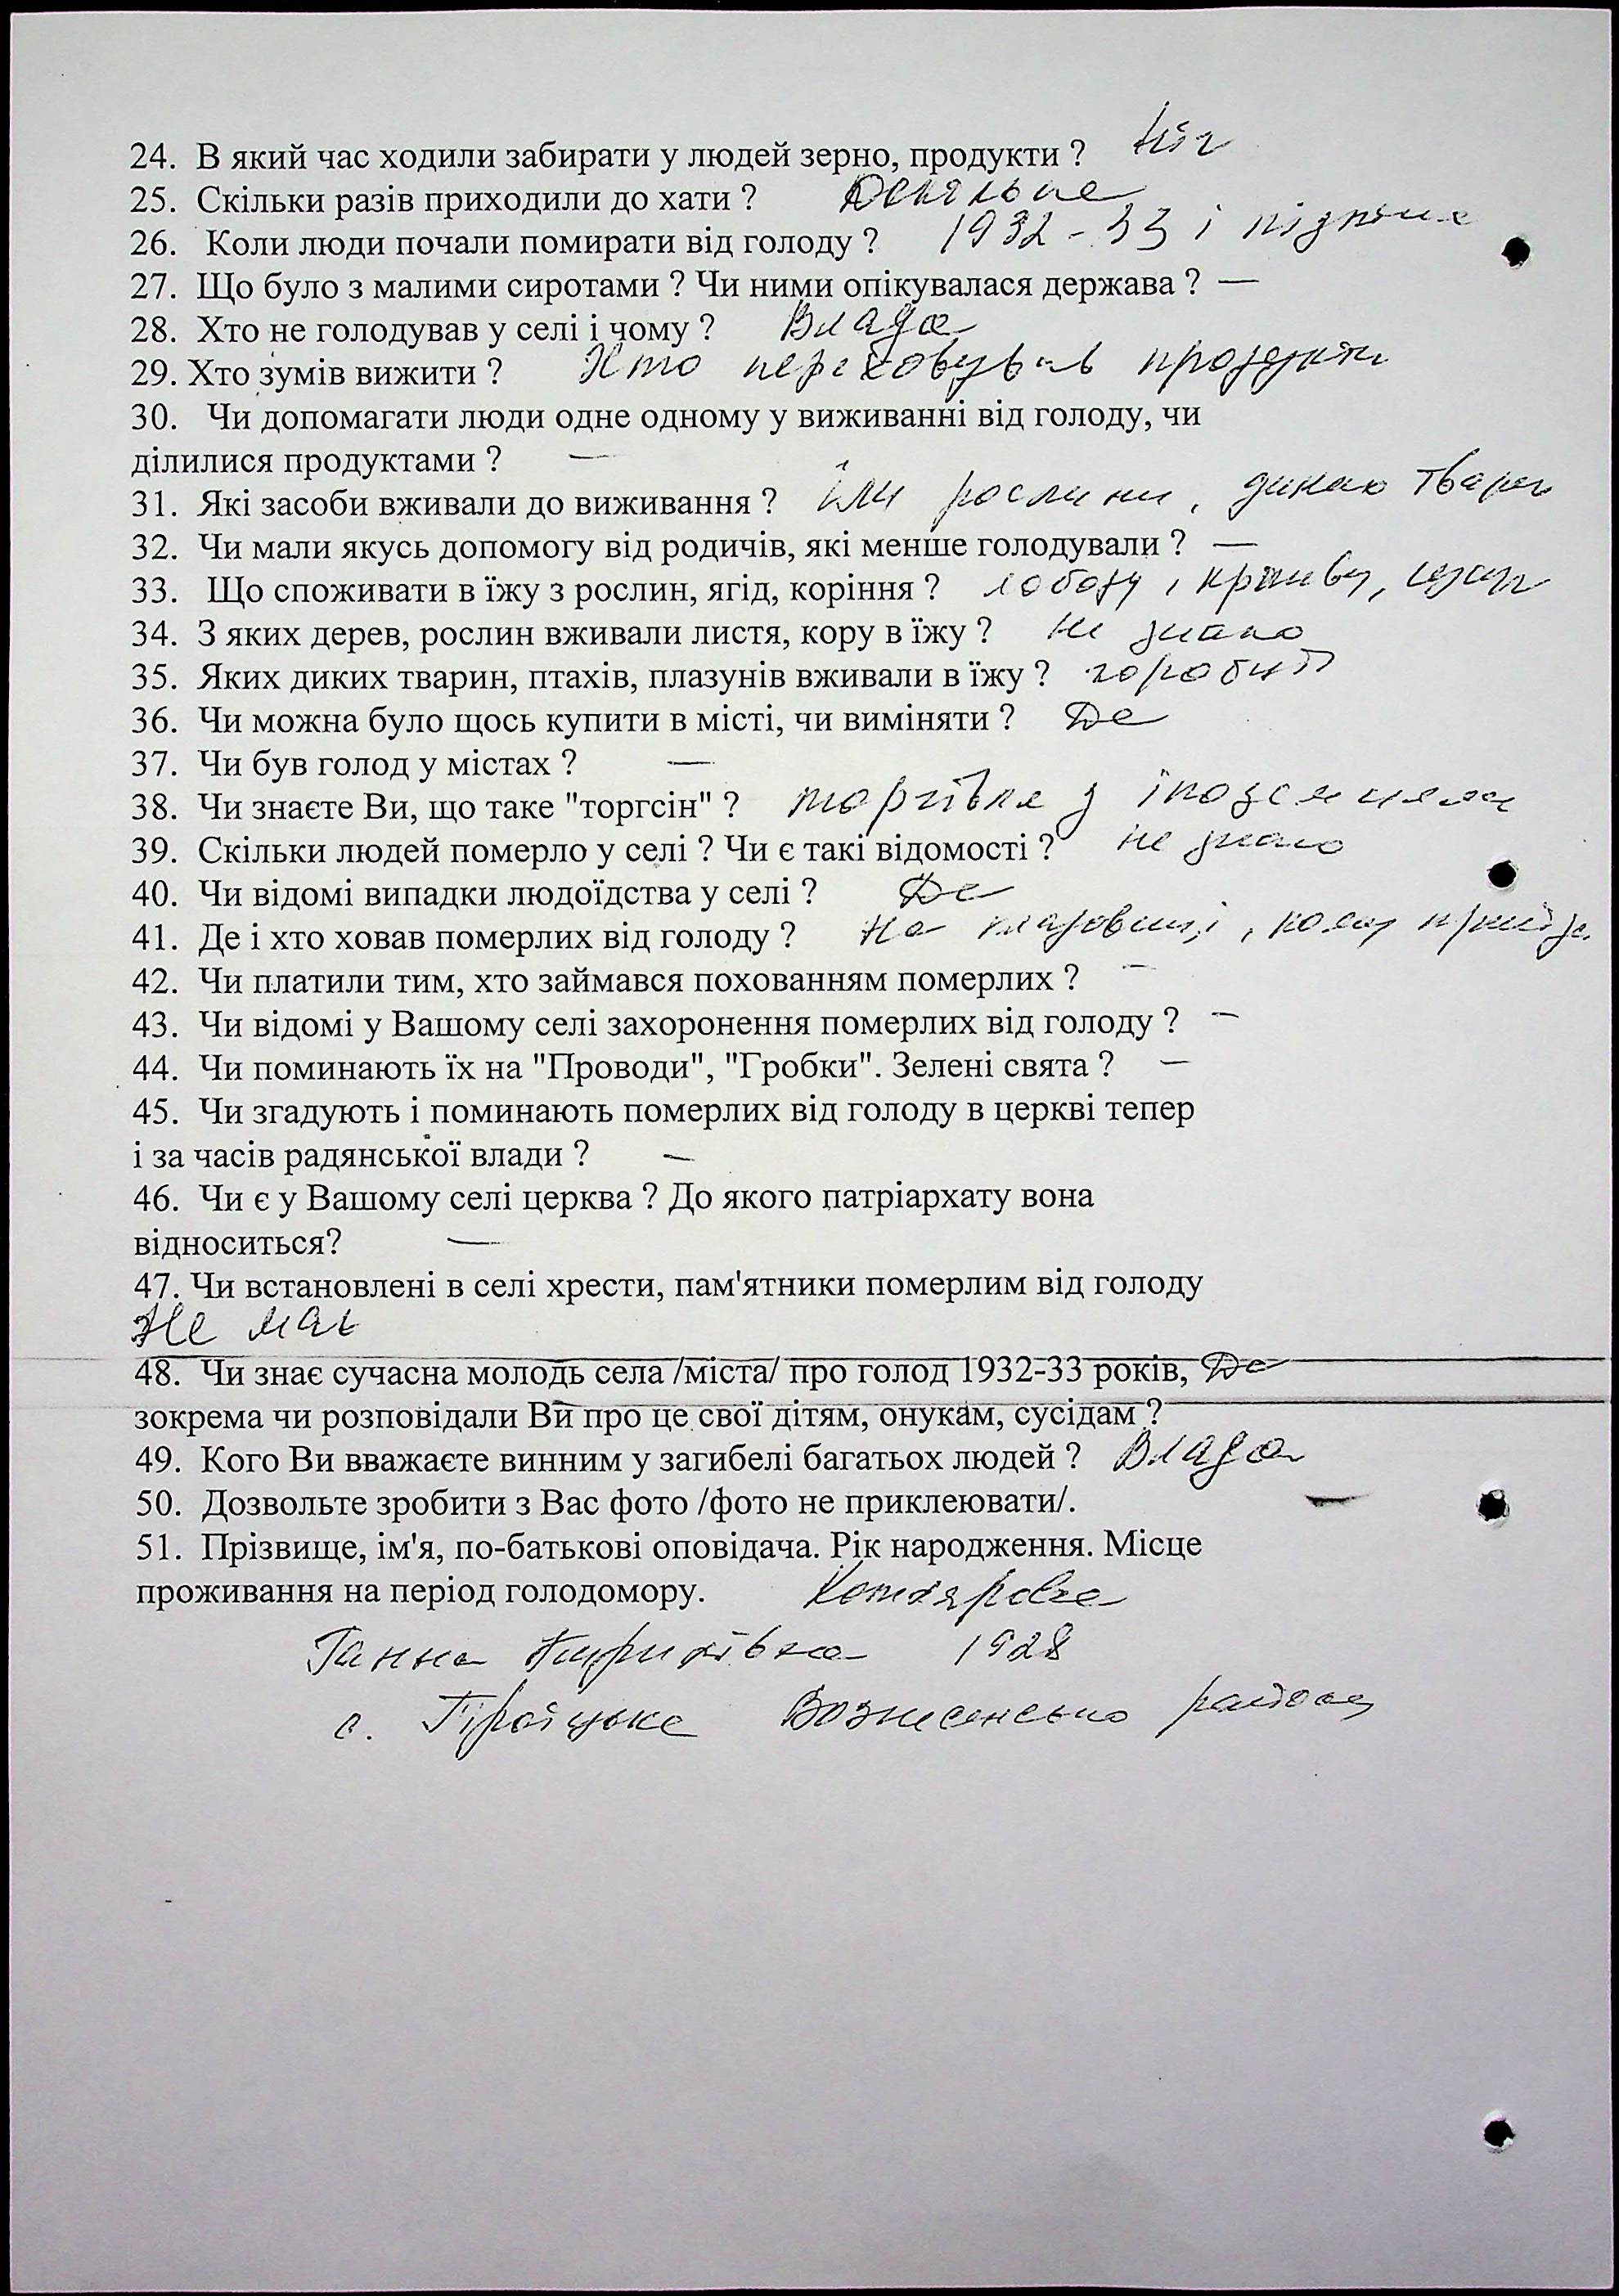 24. В який час ходили забирати у людей зерно, продукти ? Ніч
25. Скільки разів приходили до хати ? Декілька
26. Коли люди почали помирати від голоду ? 1932-33 і пізніше
27. Що було з малими сиротами ? Чи ними опікувалася держава ? —
28. Хто не голодував у селі і чому ? Влада
29. Хто зумів вижити ? Хто переховував продукти
30. Чи допомагати люди одне одному у виживанні від голоду, чи
ділилися продуктами ? —
31. Які засоби вживали до виживання ? їли рослини, диких тварин
32. Чи мали якусь допомогу від родичів, які менше голодували ? —
33. Що споживати в їжу з рослин, ягід, коріння ? лободу, кропиву,
34. З яких дерев, рослин вживали листя, кору в їжу ? не знаю
35. Яких диких тварин, птахів, плазунів вживали в їжу ? горобці
36. Чи можна було щось купити в місті, чи виміняти ? Да
37. Чи був голод у містах ? —
38. Чи знаєте Ви, що таке "торгсін" ? торгівля з іноземцями
39. Скільки людей померло у селі ? Чи є такі відомості ? не знаю
40. Чи відомі випадки людоїдства у селі ? Да
41. Де і хто ховав померлих від голоду ? На кладовищі, кому прийде
42. Чи платили тим, хто займався похованням померлих ? —
43. Чи відомі у Вашому селі захоронення померлих від голоду ? —
44. Чи поминають їх на "Проводи", "Гробки". Зелені свята ? —
45. Чи згадують і поминають померлих від голоду в церкві тепер
і за часів радянської влади ? —
46. Чи є у Вашому селі церква ? До якого патріархату вона
відноситься? —
47. Чи встановлені в селі хрести, пам'ятники померлим від голоду
Не має
48. Чи знає сучасна молодь села /міста/ про голод 1932-33 років, Да
зокрема чи розповідали Ви про це свої дітям, онукам, сусідам ?
49. Кого Ви вважаєте винним у загибелі багатьох людей ? Влада
50. Дозвольте зробити з Вас фото /фото не приклеювати/. —
51. Прізвище, ім'я, по-батькові оповідача. Рік народження. Місце
проживання на період голодомору.
Ганна 1928
с. Троїцьке Вознесенсько району